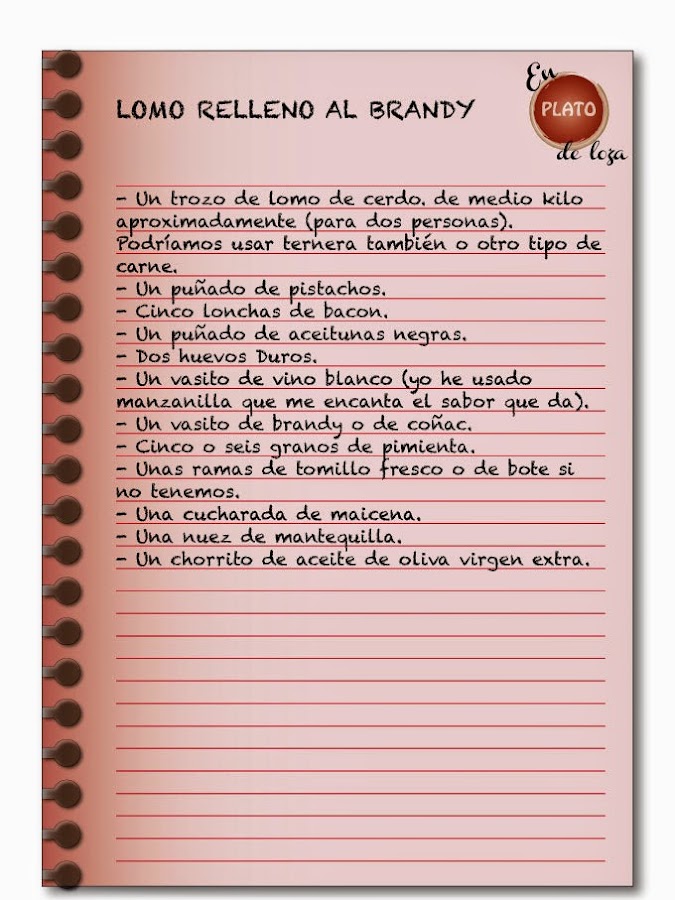 En
PLATO
de loza
LOMO RELLENO AL BRANDY
- Un trozo de lomo de cerdo, de medio kilo
aproximadamente (para dos personas).
Podríamos usar ternera también o otro tipo de
carne.
- Un puñado de pistachos.
- Cinco lonchas de bacon.
- Un puñado de aceitunas negras.
- Dos huevos Duros.
- Un vasito de vino blanco (yo he usado
manzanilla que me encanta el sabor que da).
- Un vasito de brandy o de coñac.
- Cinco o seis granos de pimienta.
- Unas ramas de tomillo fresco o de bote si
no tenemos.
- Una cucharada de maicena.
- Una nuez de mantequilla.
- Un chorrito de aceite de oliva virgen extra.